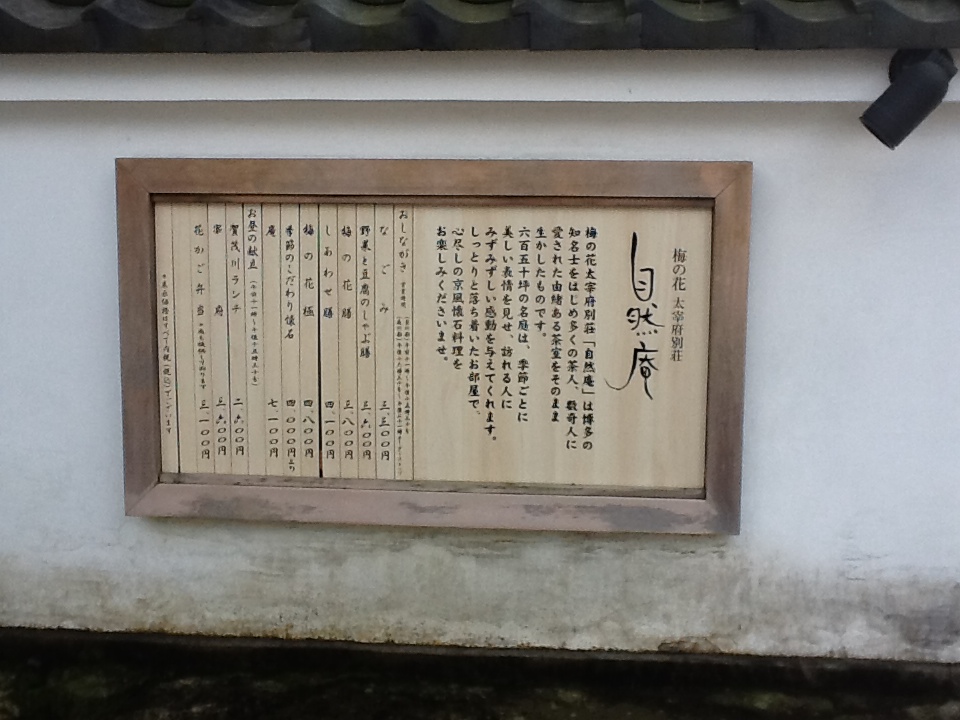 梅の花 太宰府別荘
自然庵
梅の花太宰府別荘「自然庵」は博多の
知名士をはじめ多くの茶人、数奇人に
愛された由緒ある茶室をそのまま
生かしたものです。
六百五十坪の名庭は、季節ごとに
美しい表情を見せ、訪れる人に
みずみずしい感動を与えてくれます。
しっとりと落ち着いたお部屋で、
心尽しの京風懐石料理を
お楽しみくださいませ。
おしながき 営業時間
なごみ 三、三〇〇円
野菜と豆腐のしゃぶ膳 三、六〇〇円
梅の花膳 三、八〇〇円
しあわせ膳 四、一〇〇円
梅の花極 四、八〇〇円
季節のこだわり懐石 四、〇〇〇円より
庵 七、一〇〇円
お昼の献立
賀茂川ランチ 二、六〇〇円
宰府 三、六〇〇円
花かご弁当 三、一〇〇円
※表示価格はすべて内税(税込)でございます